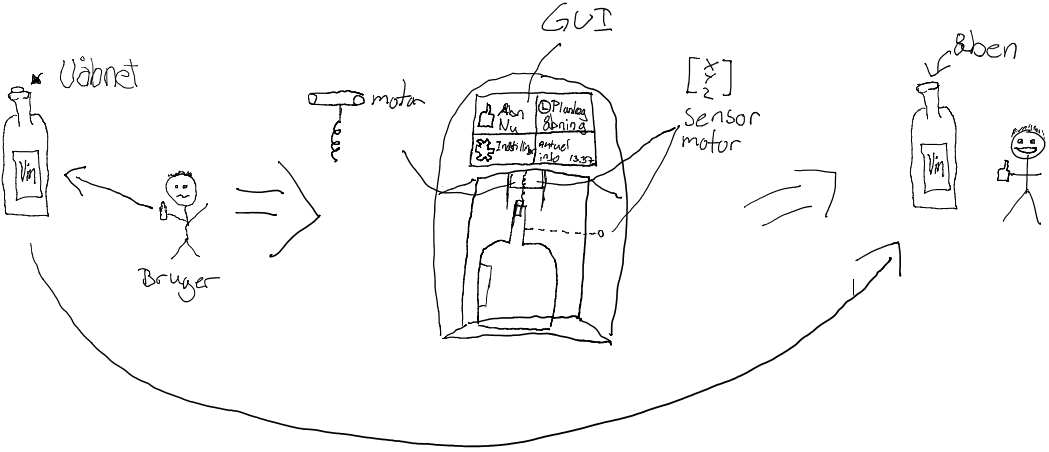 Uåbnet
Vin
Bruger
motor
GUI
Åbn
Nu
Planlæg
åbning
Indstilling
aktuel
info 13:37
[X
Y
Z]
Sensor
motor
åben
Vin